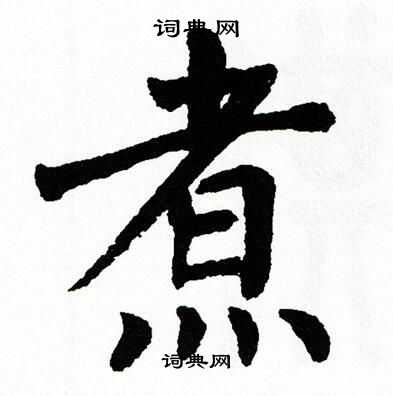 词典网
煮
词典网